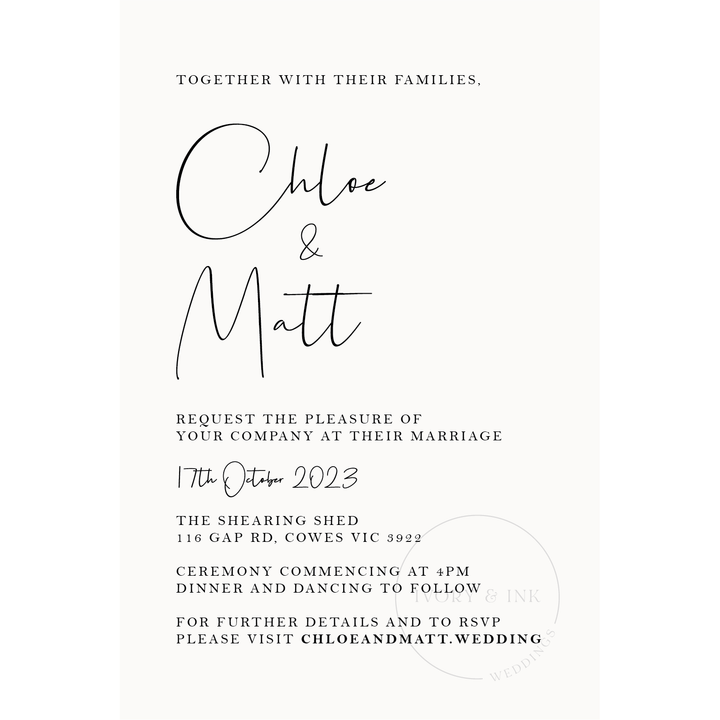 TOGETHER WITH THEIR FAMILIES,
Chloe
&
Matt
REQUEST THE PLEASURE OF
YOUR COMPANY AT THEIR MARRIAGE
17th October 2023
THE SHEARING SHED
116 GAP RD, COWES VIC 3922
CEREMONY COMMENCING AT 4PM
DINNER AND DANCING TO FOLLOW
IVORY & INK
FOR FURTHER DETAILS AND TO RSVP
PLEASE VISIT CHLOEANDMATT.WEDDING
WEDDINGS